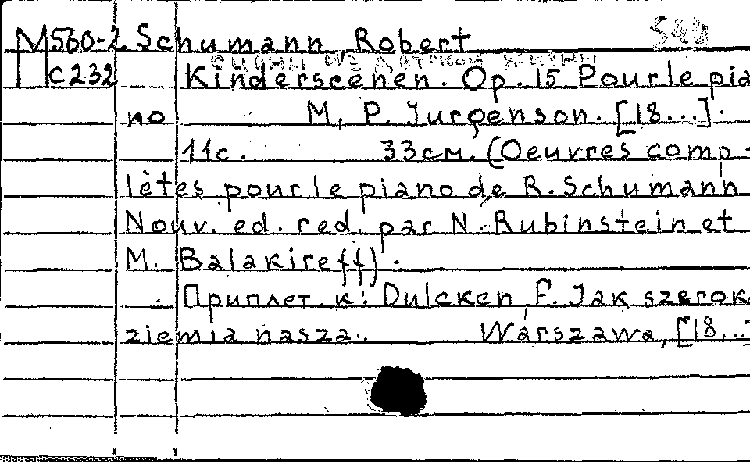 М560-2 Schumann, Robert 549
С232 Kinderscenen. Op. 15 Pour le pia
no М, P. Jurgenson. [18...].
11с. 33см. (Oeuvres comp-
lètes pour le piano de R. Schumann
Nouv. ed. red. par N. Rubinstein et
M. Balakireff).
Приплет. к: Dulcken, F. Jak szerok
ziemia nasza. Warszawa, [18...